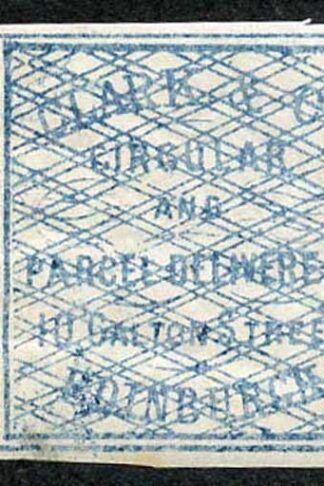 CLARK & C
CIRCULAR
AND
PARCEL DELIVERE
10 CALTON STREE
EDINBURGH